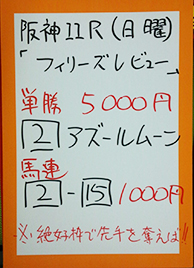 阪神11R(日曜)
「フィリーズレビュー」
単勝 5000円
2 アズールムーン
馬連
2-15 1000円
※絶好枠で先手を奪えば!!